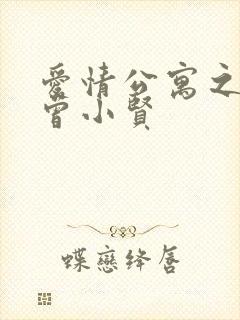 愛情公寓之
曾小賢
蝶戀絳唇